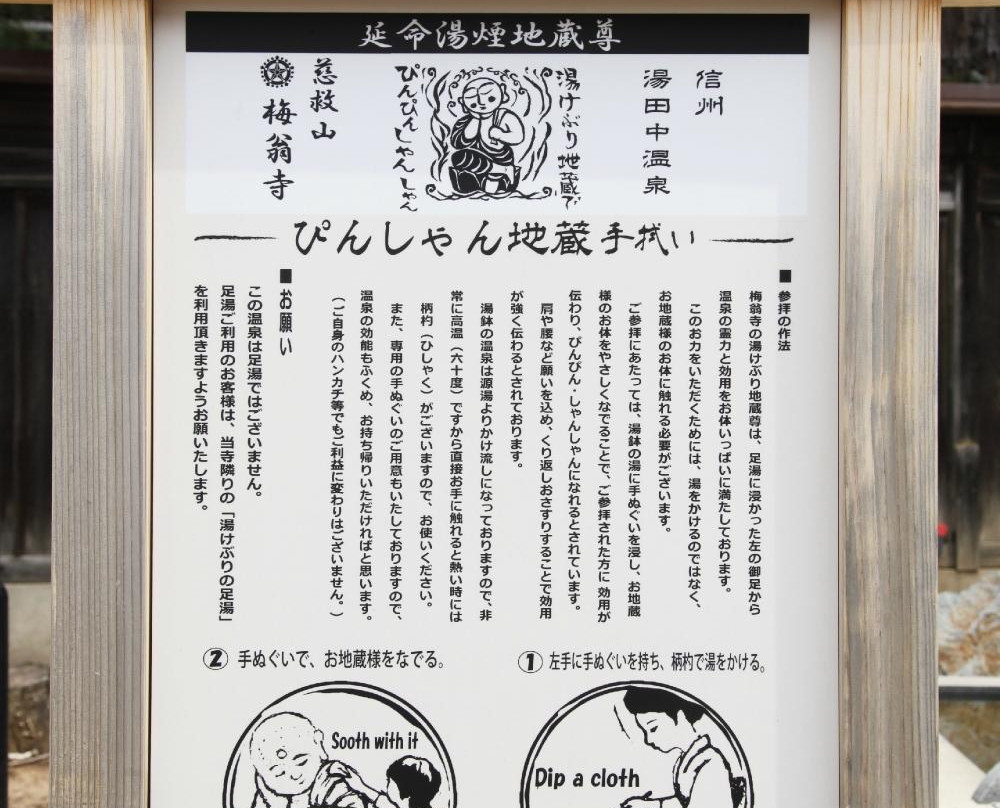 延命湯煙地蔵尊
信州
湯田中温泉
湯けぶり地蔵で
ぴんぴんしゃんしゃん
慈救山
梅翁寺
ぴんしゃん地蔵手拭い
■参拝の作法
梅翁寺の湯けぶり地蔵尊は、足湯に浸かった左の御足から
温泉の霊力と効用をお体いっぱいに満たしております。
このお力をいただくためには、湯をかけるのではなく、
お地蔵様のお体に触れる必要がございます。
ご参拝にあたっては、湯鉢の湯に手ぬぐいを浸し、お地蔵
様のお体をやさしくなでることで、ご参拝された方に効用が
伝わり、ぴんぴん・しゃんしゃんになれるとされています。
肩や腰など願いを込め、くり返しおさすりすることで効用
が強く伝わるとされております。
湯鉢の温泉は源湯よりかけ流しになっておりますので、非
常に高温（六十度）ですから直接お手に触れると熱い時には
柄杓（ひしゃく）がございますので、お使いください。
また、専用の手ぬぐいのご用意もいたしておりますので、
温泉の効能もふくめ、お持ち帰りいただければと思います。
（ご自身のハンカチ等でもご利益に変わりはございません。）
■お願い
この温泉は足湯ではございません。
足湯ご利用のお客様は、当寺隣りの「湯けぶりの足湯」
を利用頂きますようお願いたします。
①左手に手ぬぐいを持ち、柄杓で湯をかける。
Dip a cloth
②手ぬぐいで、お地蔵様をなでる。
Sooth with it